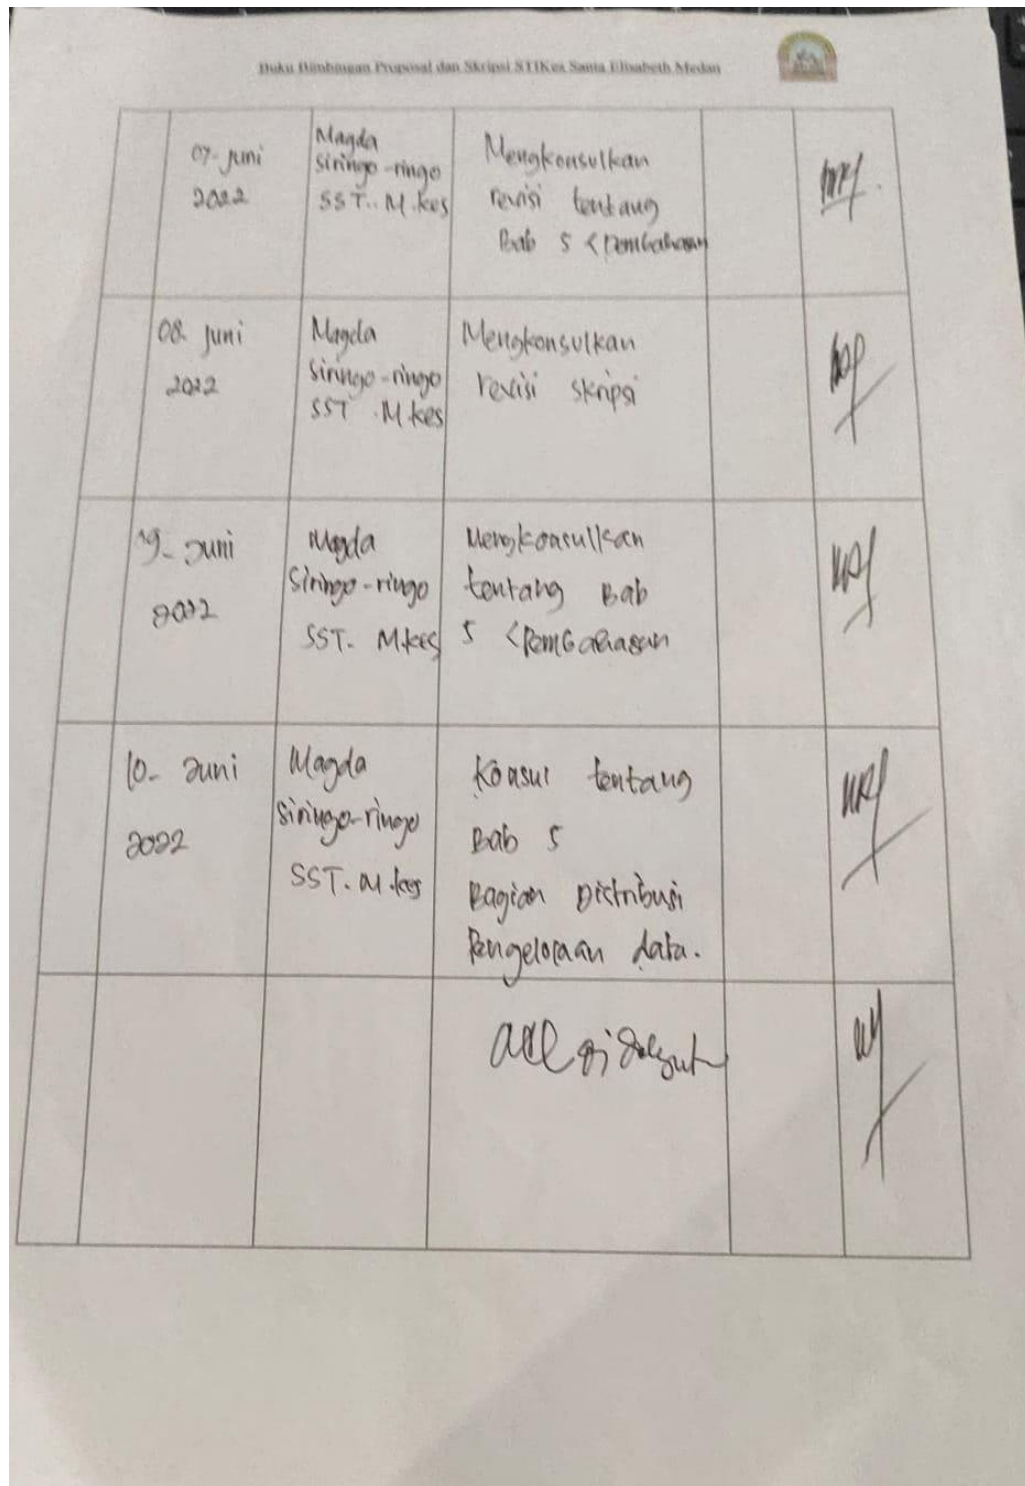 Buku Bimbingan Proposal dan Skripsi STIKes Santa Elisabeth Medan
07- Juni
2022
Magda
Siringo-ringo
SST.. M.kes
Mengkonsulkan
revisi tentang
Bab 5 <Pembahasan
08. Juni
2022
Magda
Siringo-ringo
SST .M.kes
Mengkonsulkan
revisi skripsi
09- Juni
2022
Magda
Siringo-ringo
SST. M.kes
Mengkonsulkan
tentang Bab
5 <Pembahasan
10- Juni
2022
Magda
Siringo-ringo
SST. M.kes
Konsul tentang
Bab 5
Bagian Distribusi
Pengelolaan data.